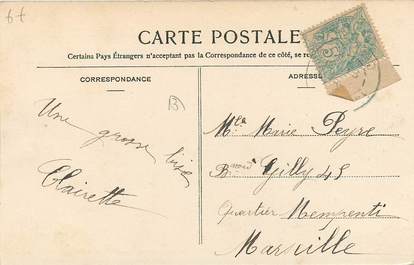 6t
CARTE POSTALE
Certains Pays Étrangers n'acceptent pas la Correspondance de ce côté, se re
CORRESPONDANCE
ADRESSE
B
Une grosse bise
Clairette
Mlle Marie Peyre
Bard Gilly 45
Quartier Mempenti
Marseille